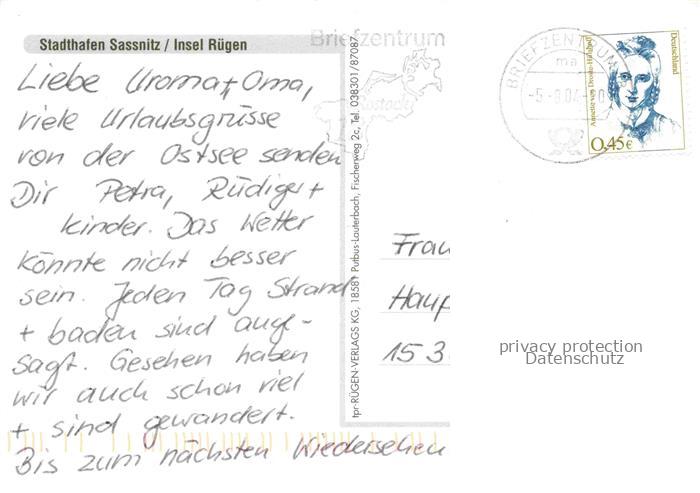 Stadthafen Sassnitz / Insel Rügen
Liebe Uroma + Oma,
viele Urlaubsgrüsse
von der Ostsee senden
Dir Petra, Rüdiger +
Kinder. Das Wetter
könnte nicht besser
sein. Jeden Tag Strand
+ baden sind ange-
sagt. Gesehen haben
wir auch schon viel
+ sind gewandert.
Bis zum nächsten Wiedersehen
tpr-RÜGEN-VERLAGS KG, 18581 Putbus-Lauterbach, Fischerweg 2c, Tel. 038301/87087
Briefzentrum
BRIEFZENTRUM
ma
-5.-8.04
Deutschland
Annette von Droste-Hülshoff
0,45€
Frau
Haup
153
privacy protection
Datenschutz